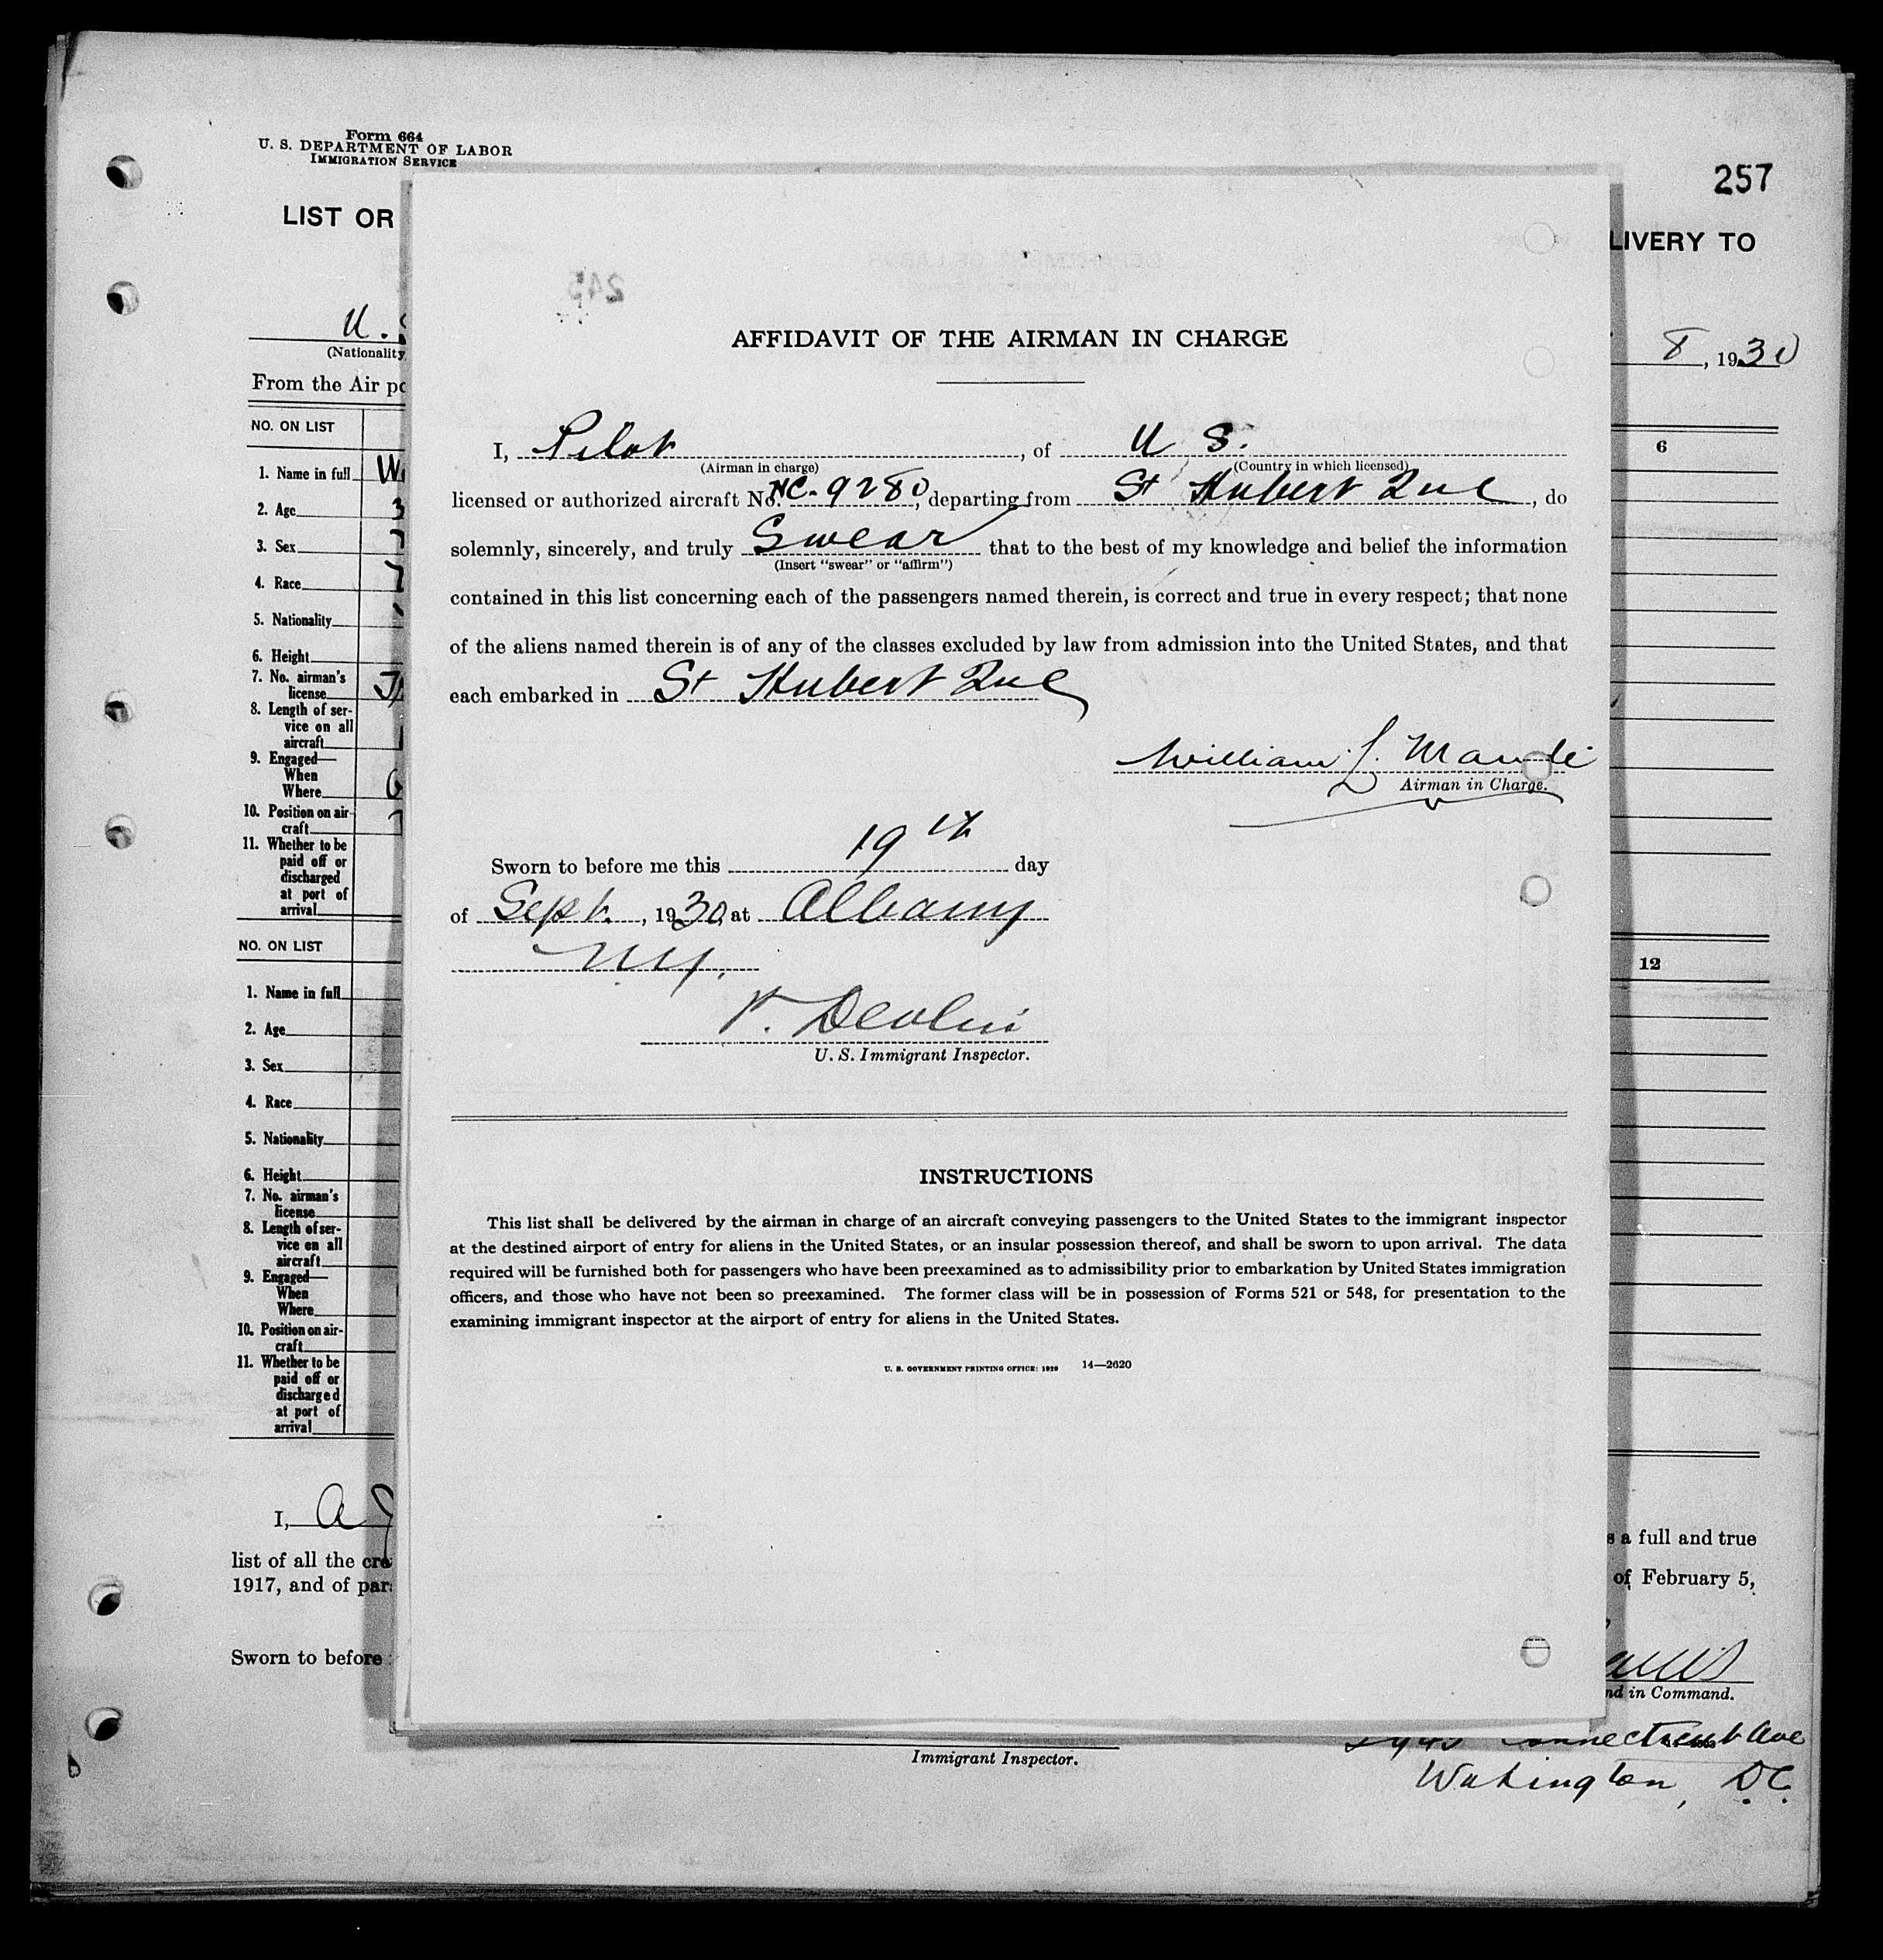 Form 664
U. S. DEPARTMENT OF LABOR
IMMIGRATION SERVICE
257
LIST OR
LIVERY TO
U. S
(Nationality
8, 1930
From the Air po
NO. ON LIST
6
1. Name in full
2. Age
3. Sex
4. Race
5. Nationality
6. Height
7. No. airman's
license
8. Length of ser-
vice on all
aircraft
9. Engaged—
When
Where
10. Position on air-
craft
11. Whether to be
paid off or
discharged
at port of
arrival
NO. ON LIST
12
1. Name in full
2. Age
3. Sex
4. Race
5. Nationality
6. Height
7. No. airman's
license
8. Length of ser-
vice on all
aircraft
9. Engaged—
When
Where
10. Position on air-
craft
11. Whether to be
paid off or
discharged
at port of
arrival
I, A
list of all the cre
1917, and of par
Sworn to before
s a full and true
of February 5,
nd in Command.
Immigrant Inspector.
Connecticut Ave
Wahington, D.C.
245
AFFIDAVIT OF THE AIRMAN IN CHARGE
I, Pilot, of U S.
(Airman in charge) (Country in which licensed)
licensed or authorized aircraft No. NC-9280, departing from St Hubert Que, do
solemnly, sincerely, and truly Swear that to the best of my knowledge and belief the information
(Insert "swear" or "affirm")
contained in this list concerning each of the passengers named therein, is correct and true in every respect; that none
of the aliens named therein is of any of the classes excluded by law from admission into the United States, and that
each embarked in St Hubert Que
William L.
Airman in Charge.
Sworn to before me this 19th day
of Sept., 1930, at Albany
NY.
P. Devlin
U. S. Immigrant Inspector.
INSTRUCTIONS
This list shall be delivered by the airman in charge of an aircraft conveying passengers to the United States to the immigrant inspector
at the destined airport of entry for aliens in the United States, or an insular possession thereof, and shall be sworn to upon arrival. The data
required will be furnished both for passengers who have been preexamined as to admissibility prior to embarkation by United States immigration
officers, and those who have not been so preexamined. The former class will be in possession of Forms 521 or 548, for presentation to the
examining immigrant inspector at the airport of entry for aliens in the United States.
U. S. GOVERNMENT PRINTING OFFICE: 1929 14—2620